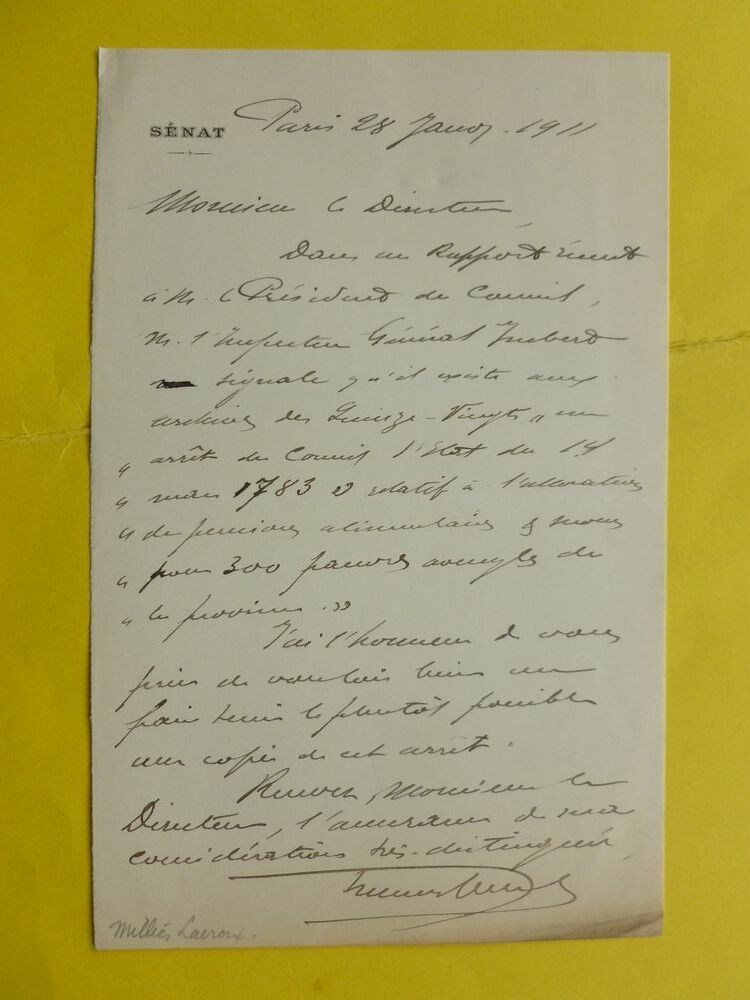 SÉNAT
Paris 28 Janvr. 1911
Monsieur le Directeur,
Dans un Rapport récent
à M. le Président du Conseil,
M. l'Inspecteur Général Imbert
signale qu'il existe aux
archives des Quinze-Vingts „ un
„ arrêt du Conseil d'Etat du 14
„ mars 1783 relatif à l'allocation
„ de pensions alimentaires
„ pour 300 pauvres aveugles de
„ la province. »
J'ai l'honneur de vous
prier de vouloir bien me
faire tenir le plutôt possible
une copie de cet arrêt.
Recevez, Monsieur le
Directeur, l'assurance de ma
considération très-distinguée
Milliès Lacroix.